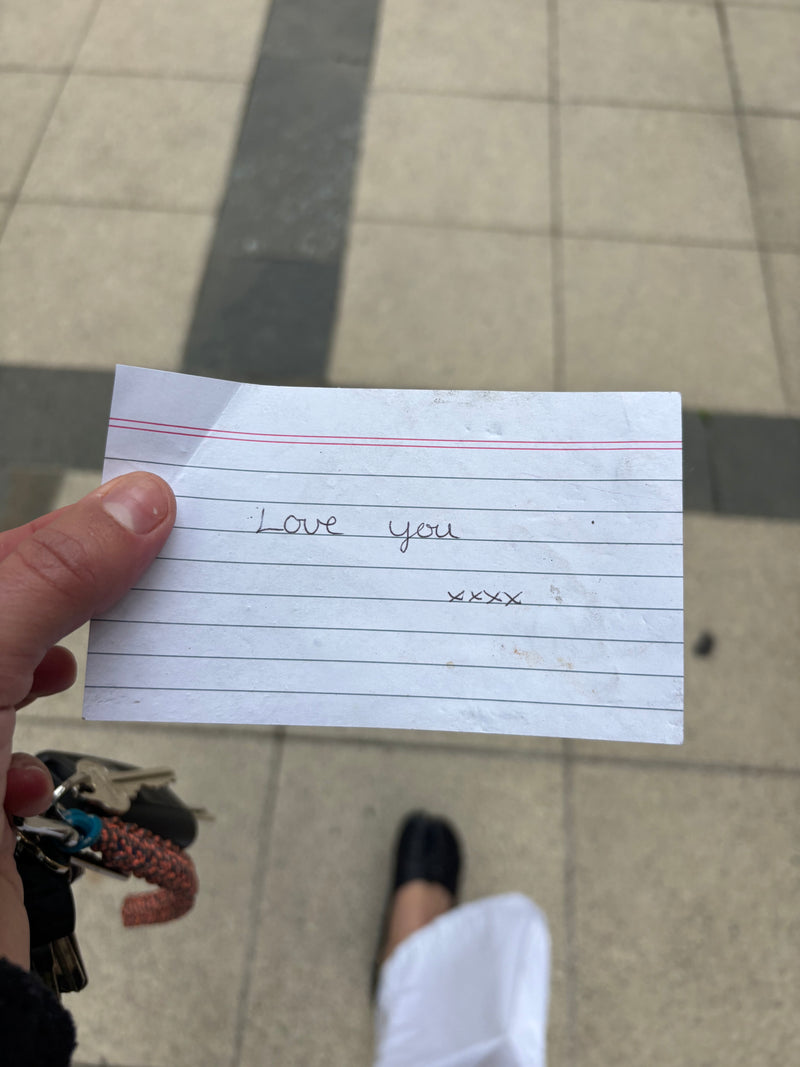 Love you
xxxx